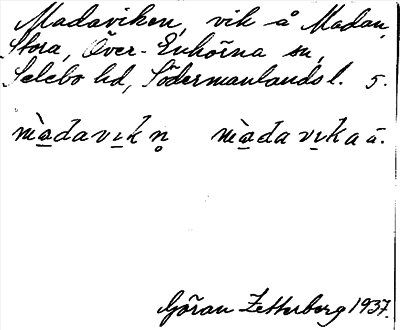 Madaviken, vik å Madan,
Stora, Över-Enhörna sn,
Selebo hd, Södermanlands l. 5.
màdavikn̥ màdavika ā.
Göran Zetterberg 1937.